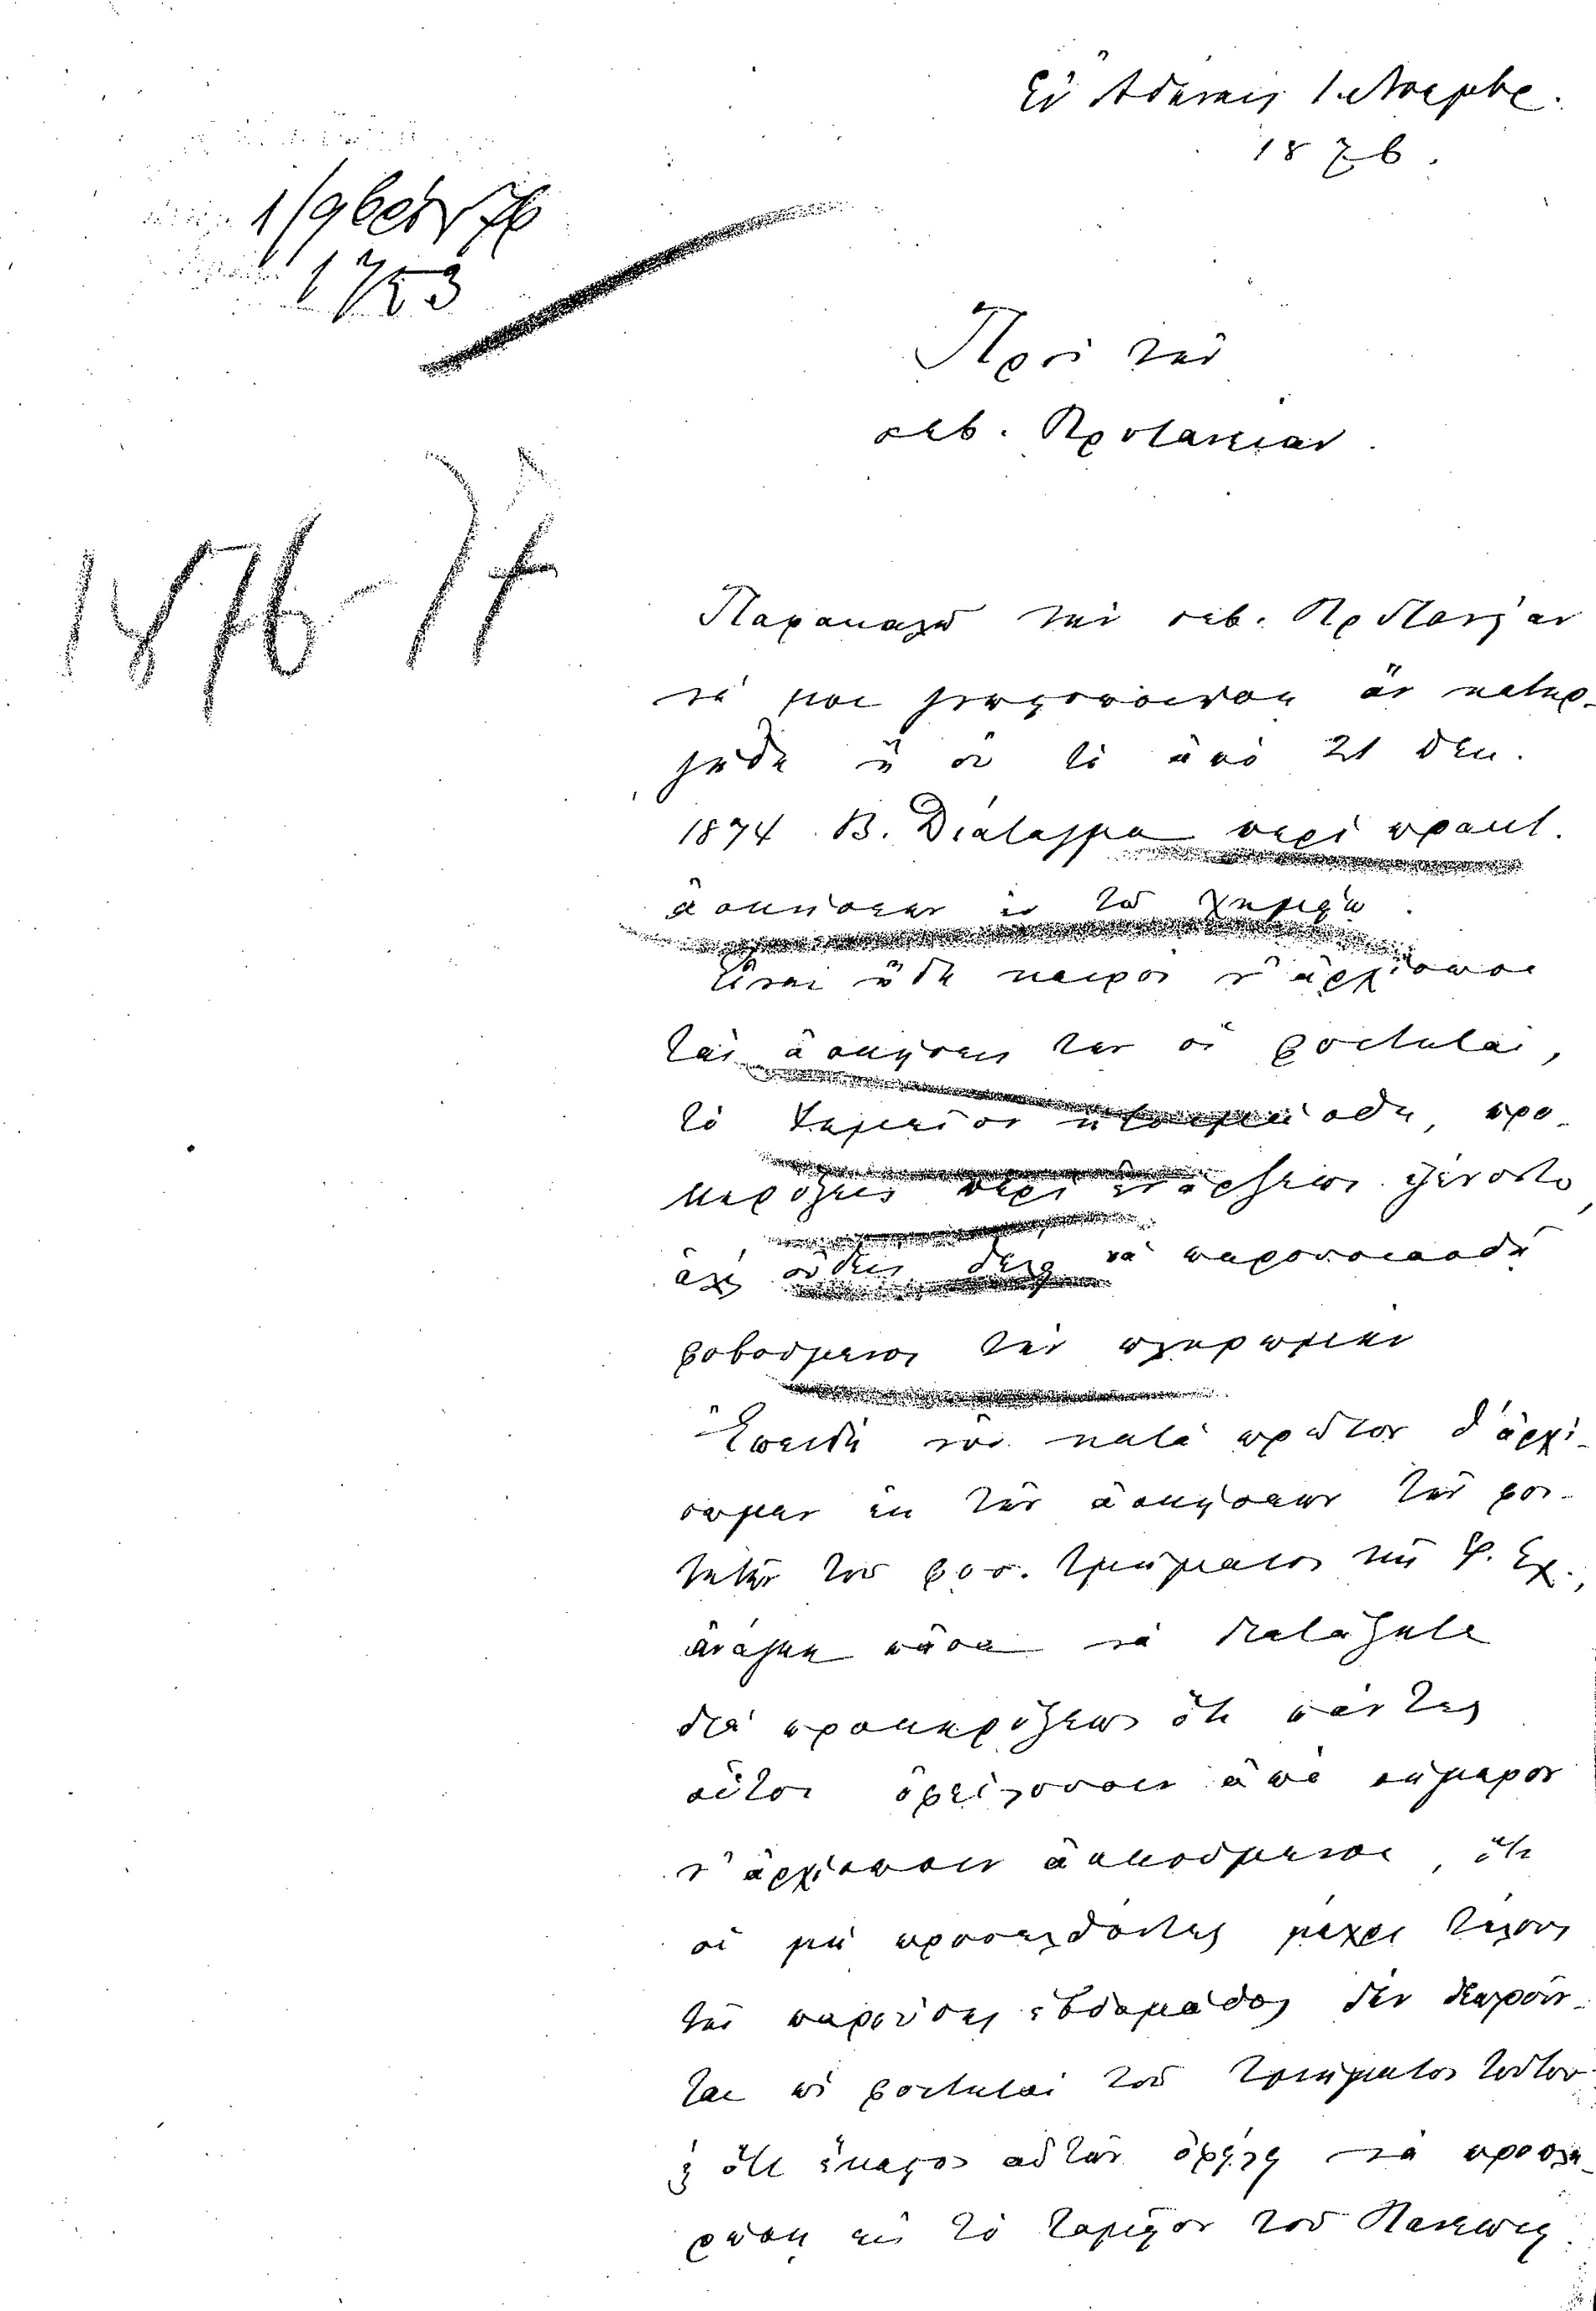 Ἐν Ἀθήναις 1 Νοεμβρ.
1876.
1/9βρίου 76
1753
Πρὸς τὴν
σεβ. Πρυτανείαν.
1876-77
Παρακαλῶ τὴν σεβ. Πρυτανείαν
νά μοι γνωστοποιήσῃ ἂν κατηρ-
γήθη ἢ οὔ τὸ ἀπὸ 21 Δεκ.
1874 Β. Διάταγμα περὶ πρακτ.
ἀσκήσεων ἐν τῷ χημείῳ.
Εἶναι ἤδη καιρὸς ν' ἀρχίσωσι
τὰς ἀσκήσεις των οἱ φοιτηταί,
τὸ Χημεῖον ἡτοιμάσθη, προ-
κηρύξεις περὶ ἐνάρξεως ἐγένοντο,
ἀλλ' οὐδεὶς θέλει νὰ παρουσιασθῇ
φοβούμενος τὴν πληρωμήν
Ἐπειδὴ νῦν κατὰ πρῶτον θ' ἀρχί-
σωμεν ἐκ τῶν ἀσκήσεων τῶν φοι-
τητῶν τοῦ φυσ. τμήματος τῆς Φ. Σχ.,
ἀνάγκη πᾶσα νὰ διατάξητε
διὰ προκηρύξεως ὅτι πάντες
οὗτοι ὀφείλουσιν ἀπὸ σήμερον
ν' ἀρχίσωσιν ἀσκούμενοι, ὅτι
οἱ μὴ προσελθόντες μέχρι τέλους
τῆς παρούσης ἑβδομάδος δὲν θεωροῦν-
ται ὡς φοιτηταὶ τοῦ τμήματος τούτου
ὅτι ἕκαστος αὐτῶν ὀφείλει νὰ προπλη-
ρώσῃ εἰς τὸ ταμεῖον τοῦ Πανεπις.